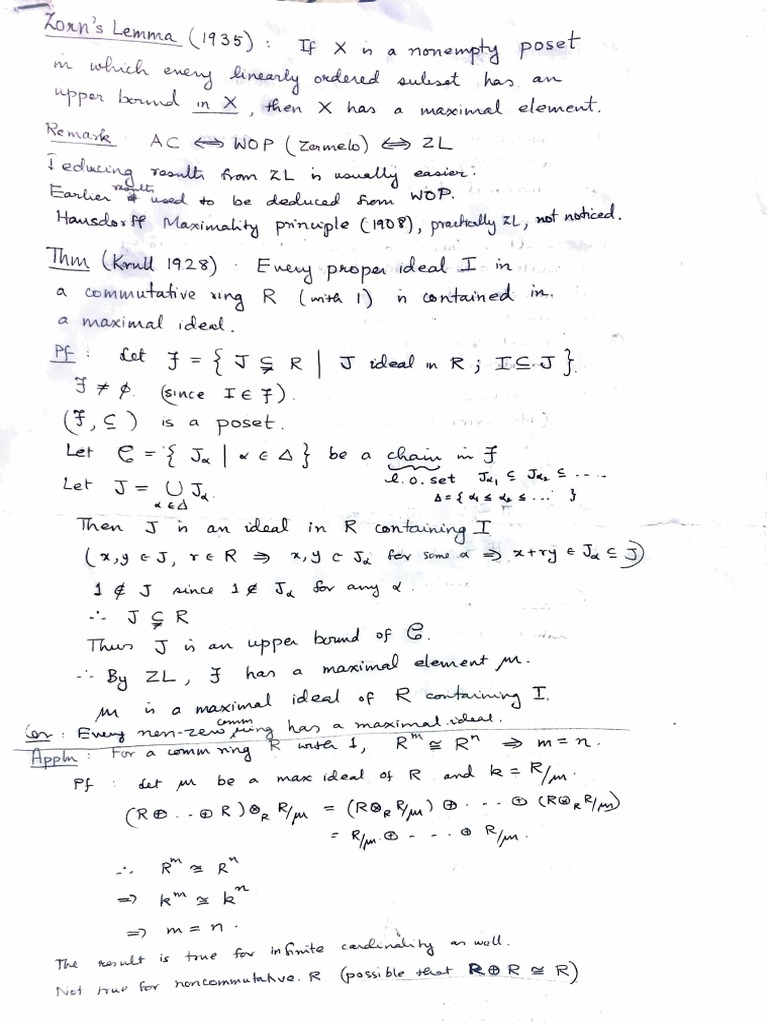 Zorn's Lemma (1935) : If X is a nonempty poset
in which every linearly ordered subset has an
upper bound in X, then X has a maximal element.
Remark AC ⟺ WOP (Zermelo) ⟺ ZL
Deducing results from ZL is usually easier.
Earlier results used to be deduced from WOP.
Hausdorff Maximality principle (1908), practically ZL, not noticed.
Thm (Krull 1928) . Every proper ideal I in
a commutative ring R (with 1) is contained in
a maximal ideal.
Pf : Let ℱ = { J ⊊ R | J ideal in R ; I ⊆ J }.
ℱ ≠ ϕ. (since I ∈ ℱ).
(ℱ, ⊆) is a poset.
Let 𝒞 = { J_α | α ∈ Δ } be a chain in ℱ
l.o. set J_α₁ ⊆ J_α₂ ⊆ ....
Let J = ∪_{α∈Δ} J_α.
Δ = { α₁ ≤ α₂ ≤ ... }
Then J is an ideal in R containing I
(x,y ∈ J, r ∈ R ⇒ x,y ∈ J_α for some α ⇒ x+ry ∈ J_α ⊆ J)
1 ∉ J since 1 ∉ J_α for any α.
∴ J ⊊ R
Thus J is an upper bound of 𝒞.
∴ By ZL, ℱ has a maximal element μ.
μ is a maximal ideal of R containing I.
Cor : Every non-zero comm ring has a maximal ideal.
Appln : For a comm ring R with 1, R^m ≅ R^n ⇒ m = n.
Pf : Let μ be a max ideal of R and k = R/μ.
(R ⊕ ... ⊕ R) ⊗_R R/μ = (R ⊗_R R/μ) ⊕ .... ⊕ (R ⊗_R R/μ)
= R/μ ⊕ - - - ⊕ R/μ.
∴ R^m ≅ R^n
⇒ k^m ≅ k^n
⇒ m = n.
The result is true for infinite cardinality as well.
Not true for noncommutative R (possible that R ⊕ R ≅ R)